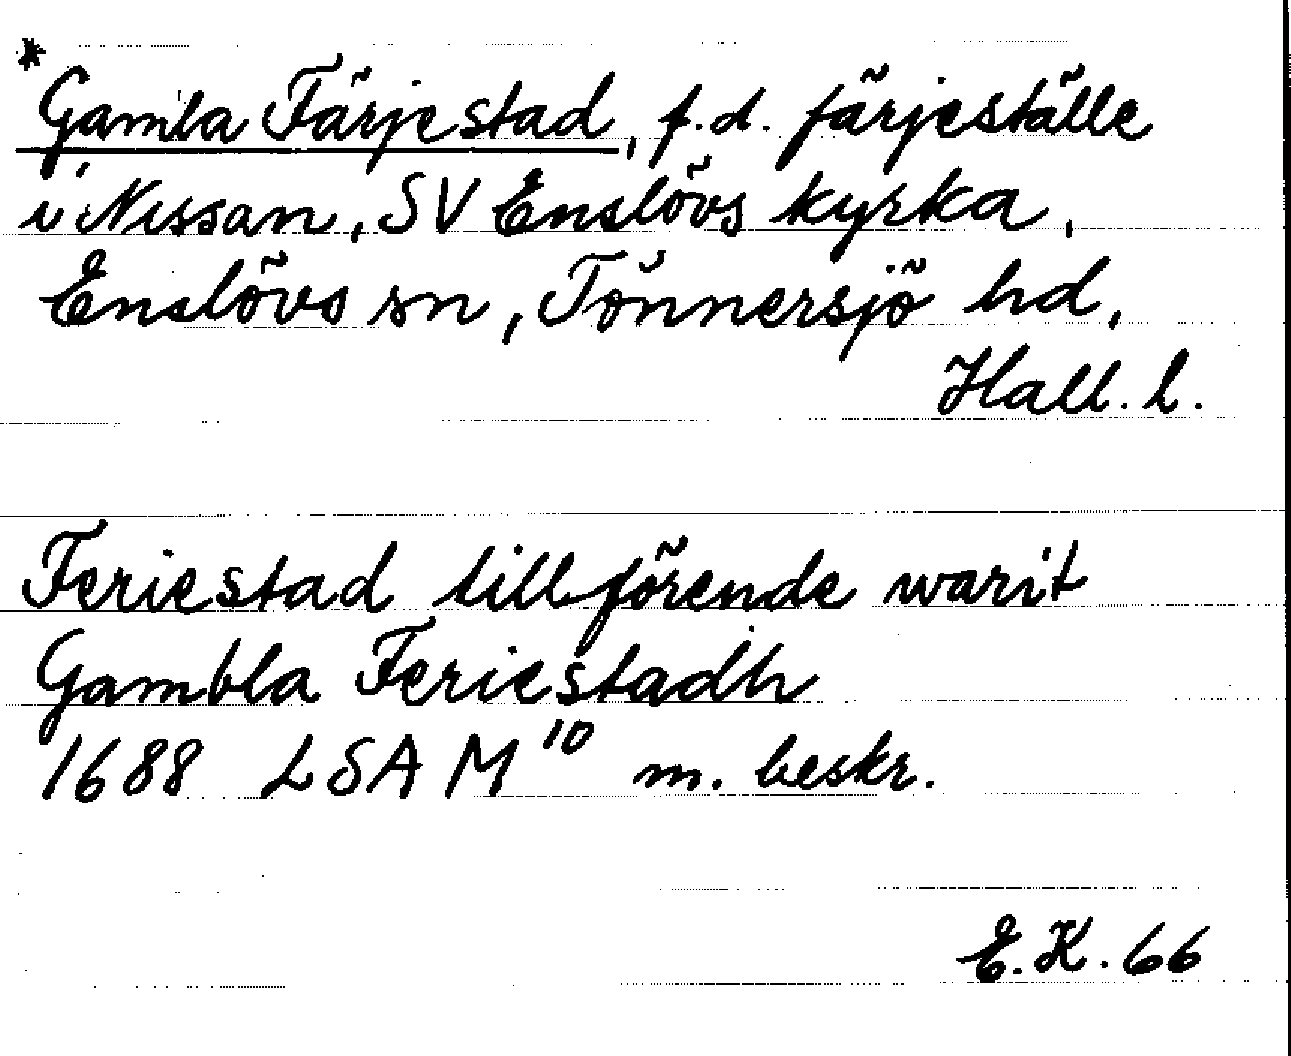 *
Gamla Färjestad, f.d. färjeställe
i Nissan, SV Enslövs kyrka,
Enslövs sn, Tönnersjö hd,
Hall. l.
Feriestad tillförende warit
Gambla Feriestadh
1688 LSA M 10 m. beskr.
E.K. 66